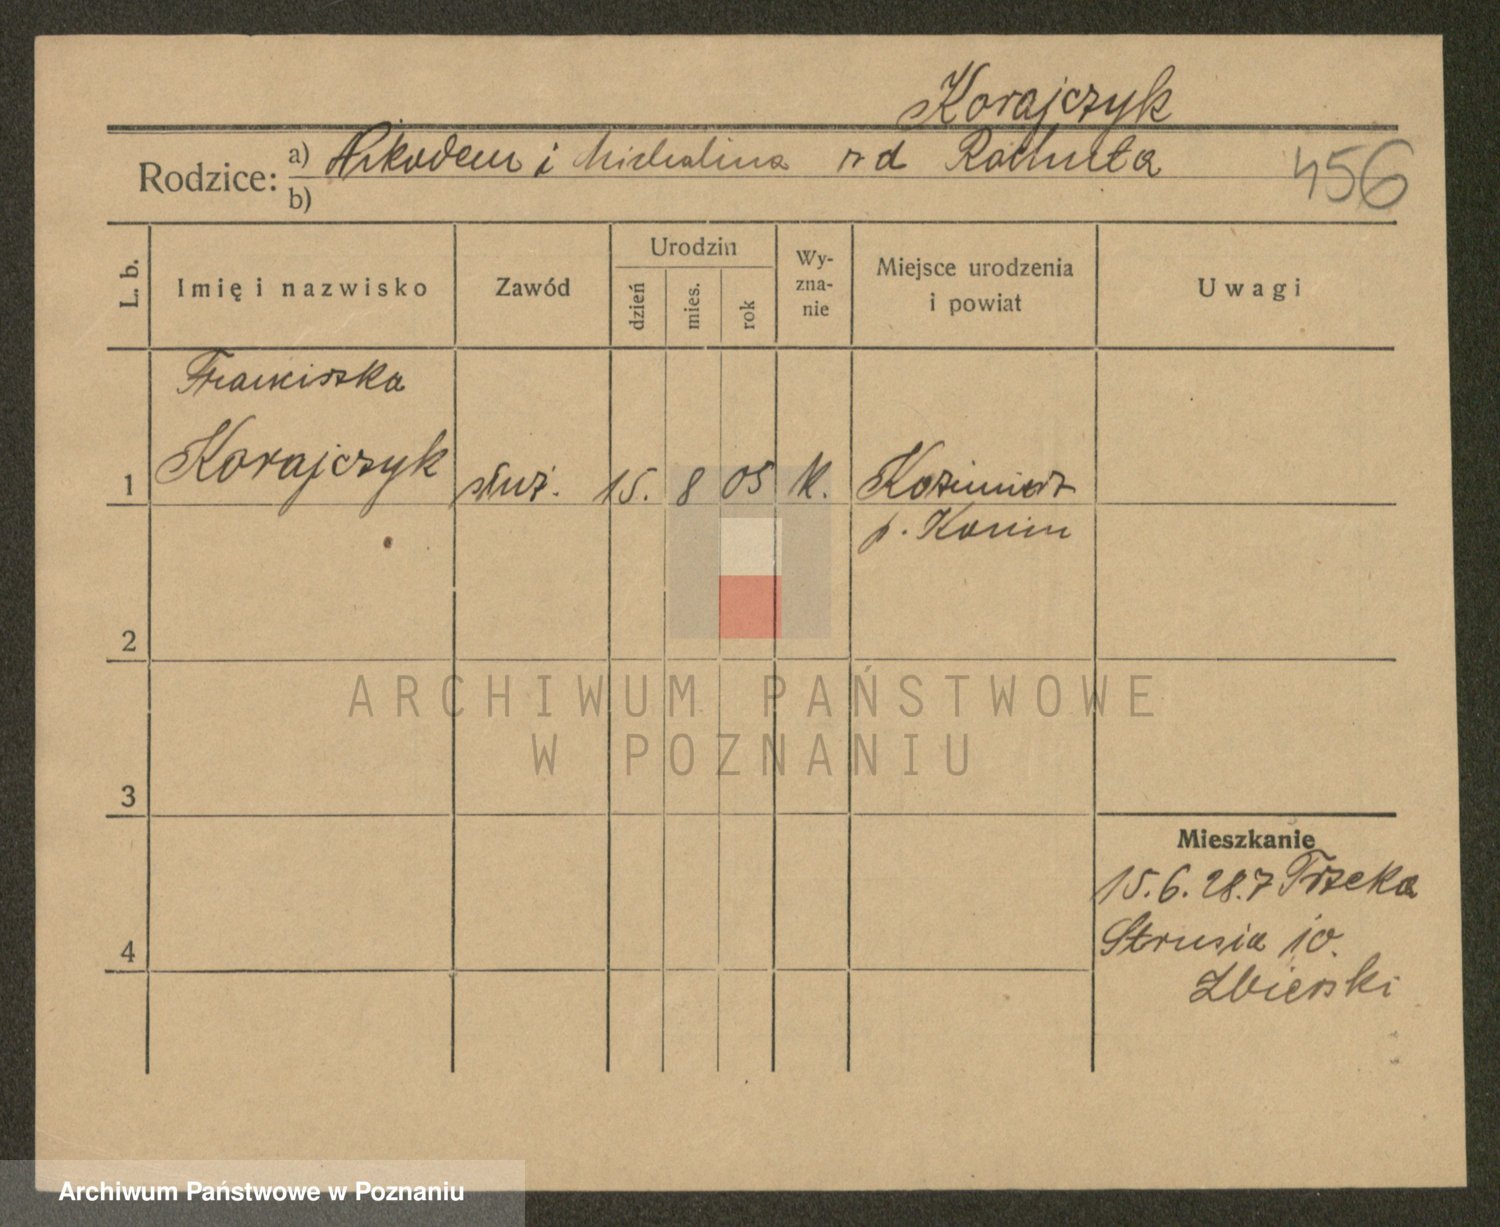 Korajczyk
Rodzice: a) Nikodem i Michalina rd
b)
456
L. b.
Imię i nazwisko
Zawód
Urodzin
dzień
mies.
rok
Wy-
zna-
nie
Miejsce urodzenia
i powiat
Uwagi
Franciszka
1 Korajczyk służ. 15. 8 05 k. Kazimierz
p. Konin
2
3
4
ARCHIWUM PAŃSTWOWE
W POZNANIU
Mieszkanie
15.6.28. Trzeka
Strusia 10.
Zbierski
Archiwum Państwowe w Poznaniu